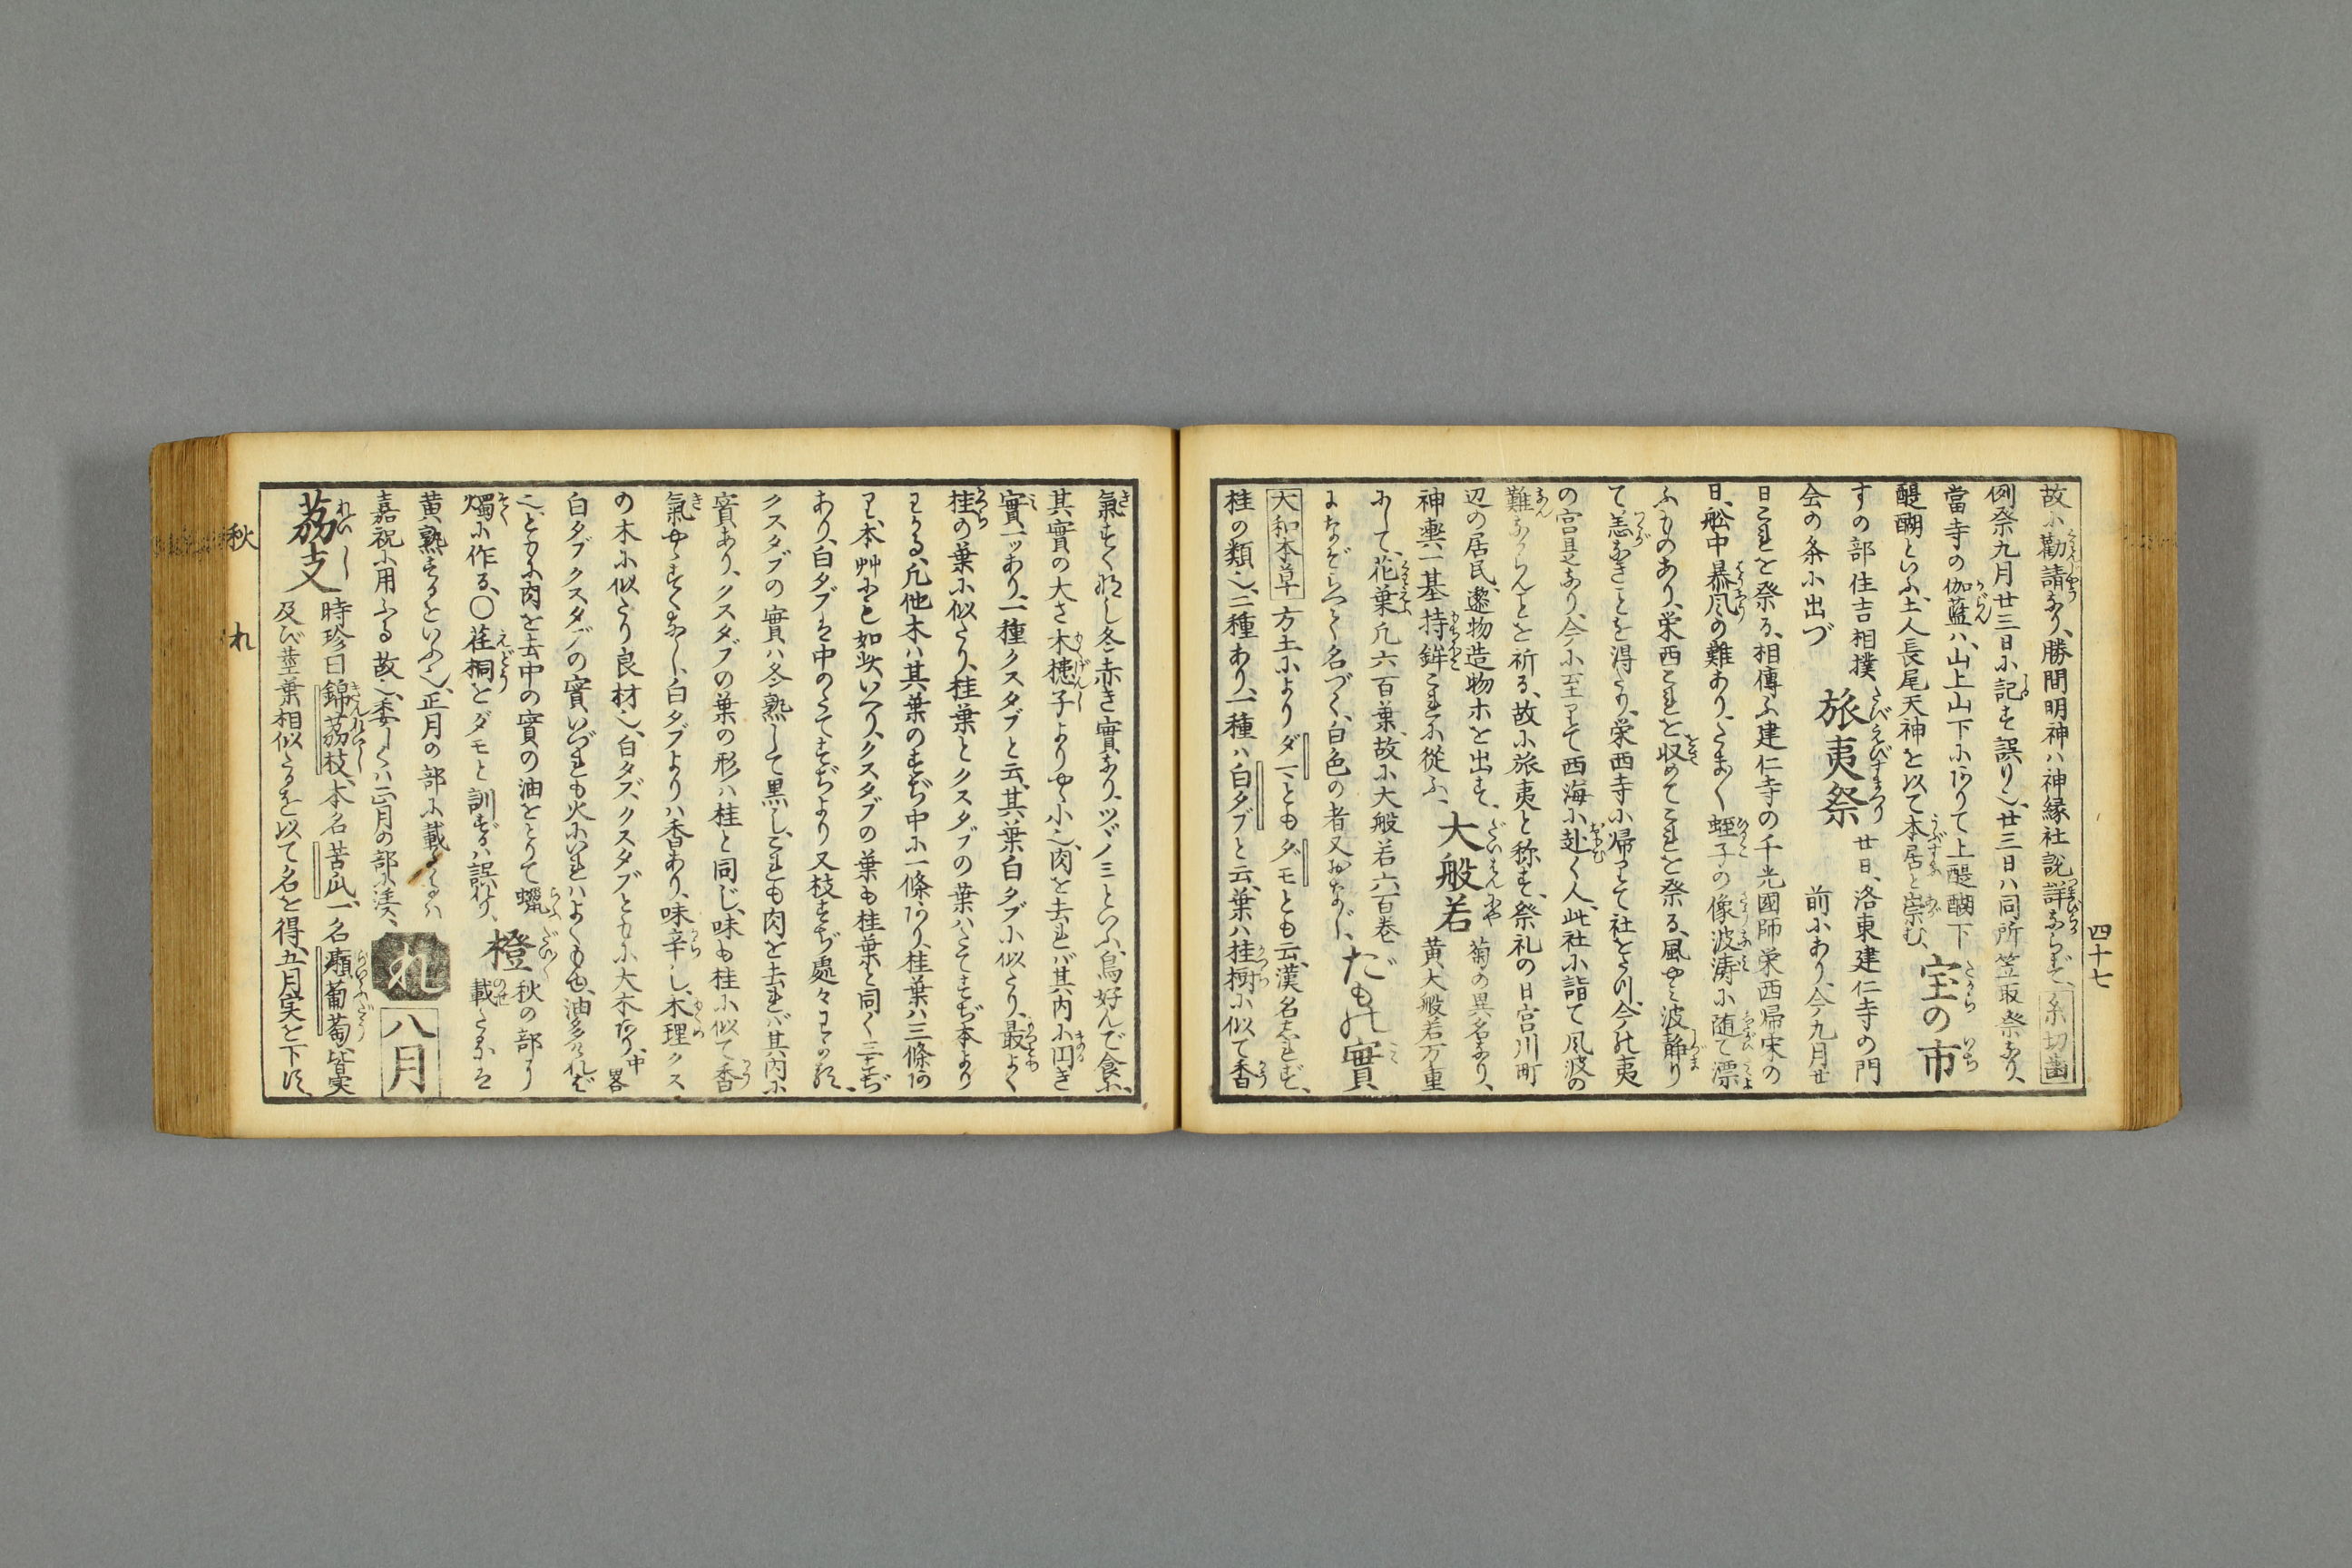 四十七
故に勧請なり、勝間明神ハ神縁社説詳ならず、糸切歯
例祭九月廿三日に記す誤り也、廿三日ハ同所笠取祭なり、
當寺の伽藍ハ、山上山下にありて上醍醐下
醍醐といふ、土人長尾天神を以て本居と崇む、
宝の市
すの部住吉相撲
会の条に出づ
旅夷祭
廿日、洛東建仁寺の門
前にあり、今九月廿
日これを祭る、相傳ふ建仁寺の千光國師栄西帰宋の
日、舩中暴風の難あり、たま〱蛭子の像波涛に随て漂
ふものあり、栄西これを収めてこれを祭る、風やみ波静り
て恙なきことを得たり、栄西寺に帰りて社をたつ、今の夷
の宮是なり、今に至りて西海に赴く人、此社に詣て風波の
難なからんことを祈る、故に旅夷と称す、祭礼の日宮川町
辺の居民、邌物造物ホを出す、
神輿一基持鉾これに從ふ、
大般若
菊の異名なり、
黄大般若万重
にして、花葉凡六百葉、故に大般若六百巻
になぞらへて名づく、白色の者又おなじ、
だもの實
大和本草 方土によりダマともダモとも云、漢名しれず、
桂の類也、二種あり、一種ハ白ダブと云、葉ハ桂樹に似て香
氣すくなし冬赤き實あり、ツヅノミといふ、鳥好んで食ふ、
其實の大さ木槵子よりやゝ小也、肉を去れバ其内に円き
實一ツあり、一種クスタブと云、其葉白タブに似たり、最よく
桂の葉に似たり、桂葉とクスタブの葉ハたてすぢ本より
わかる、凡他木ハ其葉のすぢ中に一條あり、桂葉ハ三條あ
り、本艸にも如此いへり、クスタブの葉も桂葉と同く三すぢ
あり、白タブは中のたてすぢより又枝すぢ處々わかる、
クスタブの實ハ冬熟して黒し、これも肉を去れバ其内に
實あり、クスタブの葉の形ハ桂と同じ、味も桂に似て香
氣やゝすくなし、白タブよりハ香あり、味辛し、木理クス
の木に似たり良材也、白タブ、クスタブともに大木あり、中畧
白タブクスタブの實、いづれも火にいれハよくもゆ、油多けれバ
也、ともに肉を去中の實の油をとりて蠟
燭に作る、〇荏桐とダモと訓ずるハ誤り、
橙
秋の部より
載たるは
黄熟するをいふ也、正月の部に載たるハ
嘉祝に用ふる故也、委しくハ正月の部に湊、
れ
八月
茘支
時珍曰錦茘枝、本名苦瓜、一名癩葡萄、皆実
及び莖葉相似たるを以て名を得、五月実を下す、
秋
れ